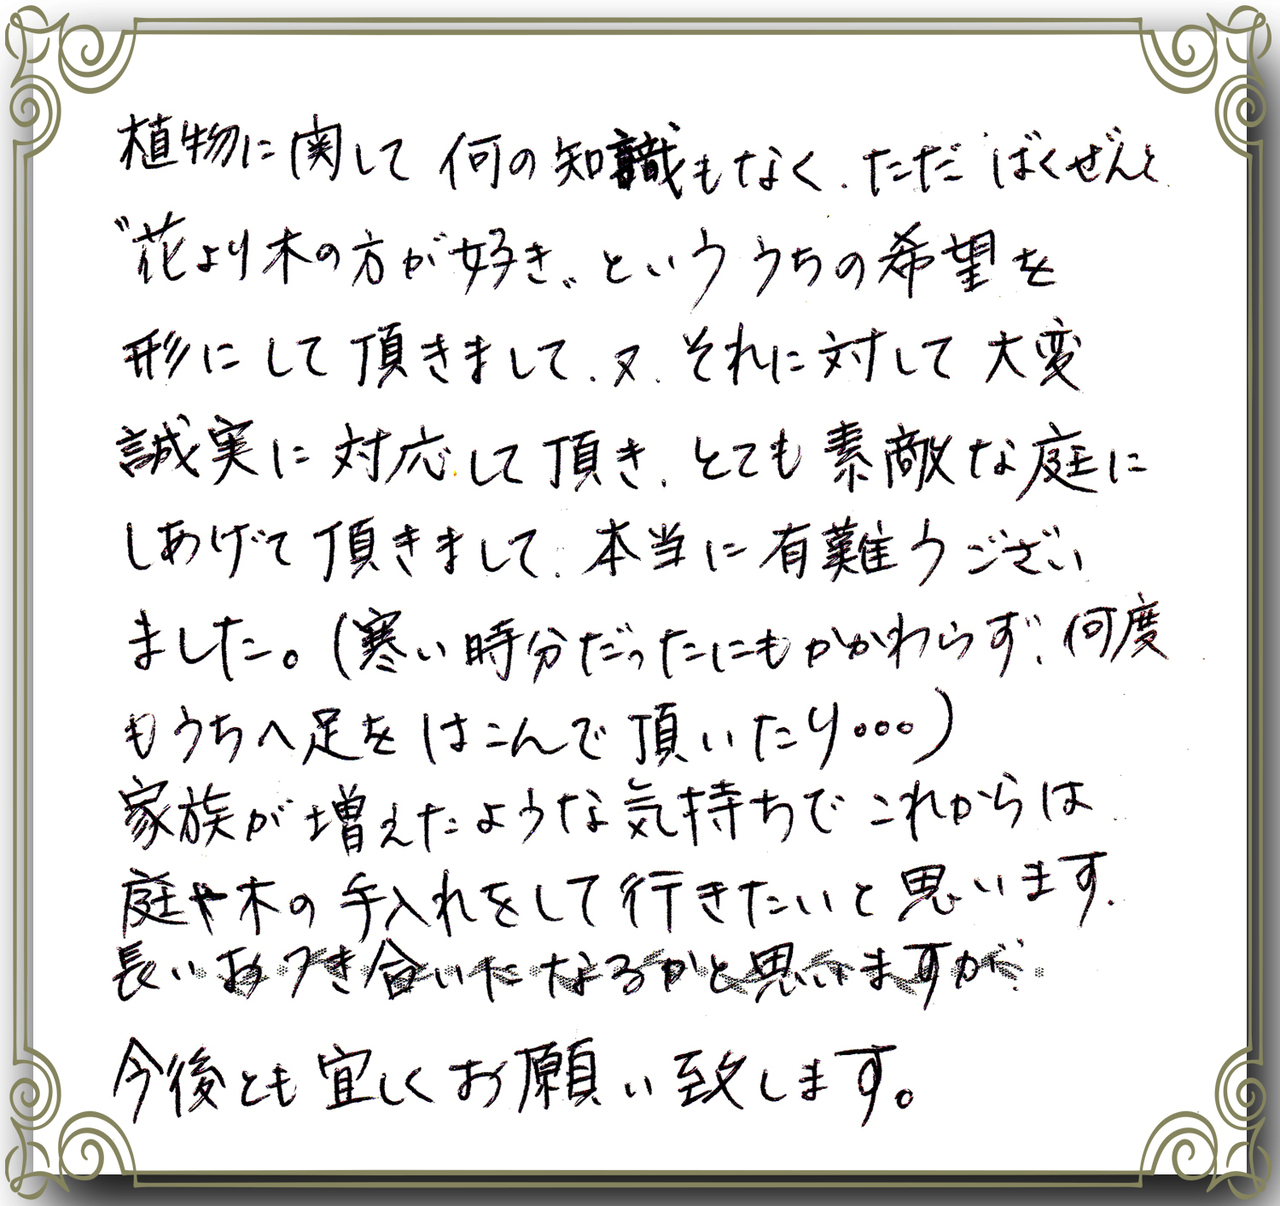 植物に関して何の知識もなく、ただばくぜんと
〝花より木の方が好き〟といううちの希望を
形にして頂きまして、又、それに対して大変
誠実に対応して頂き、とても素敵な庭に
しあげて頂きまして、本当に有難うござい
ました。(寒い時分だったにもかかわらず、何度
もうちへ足をはこんで頂いたり…)
家族が増えたような気持ちでこれからは
庭や木の手入れをして行きたいと思います。
長いおつき合いになるかと思いますが、
今後とも宜しくお願い致します。